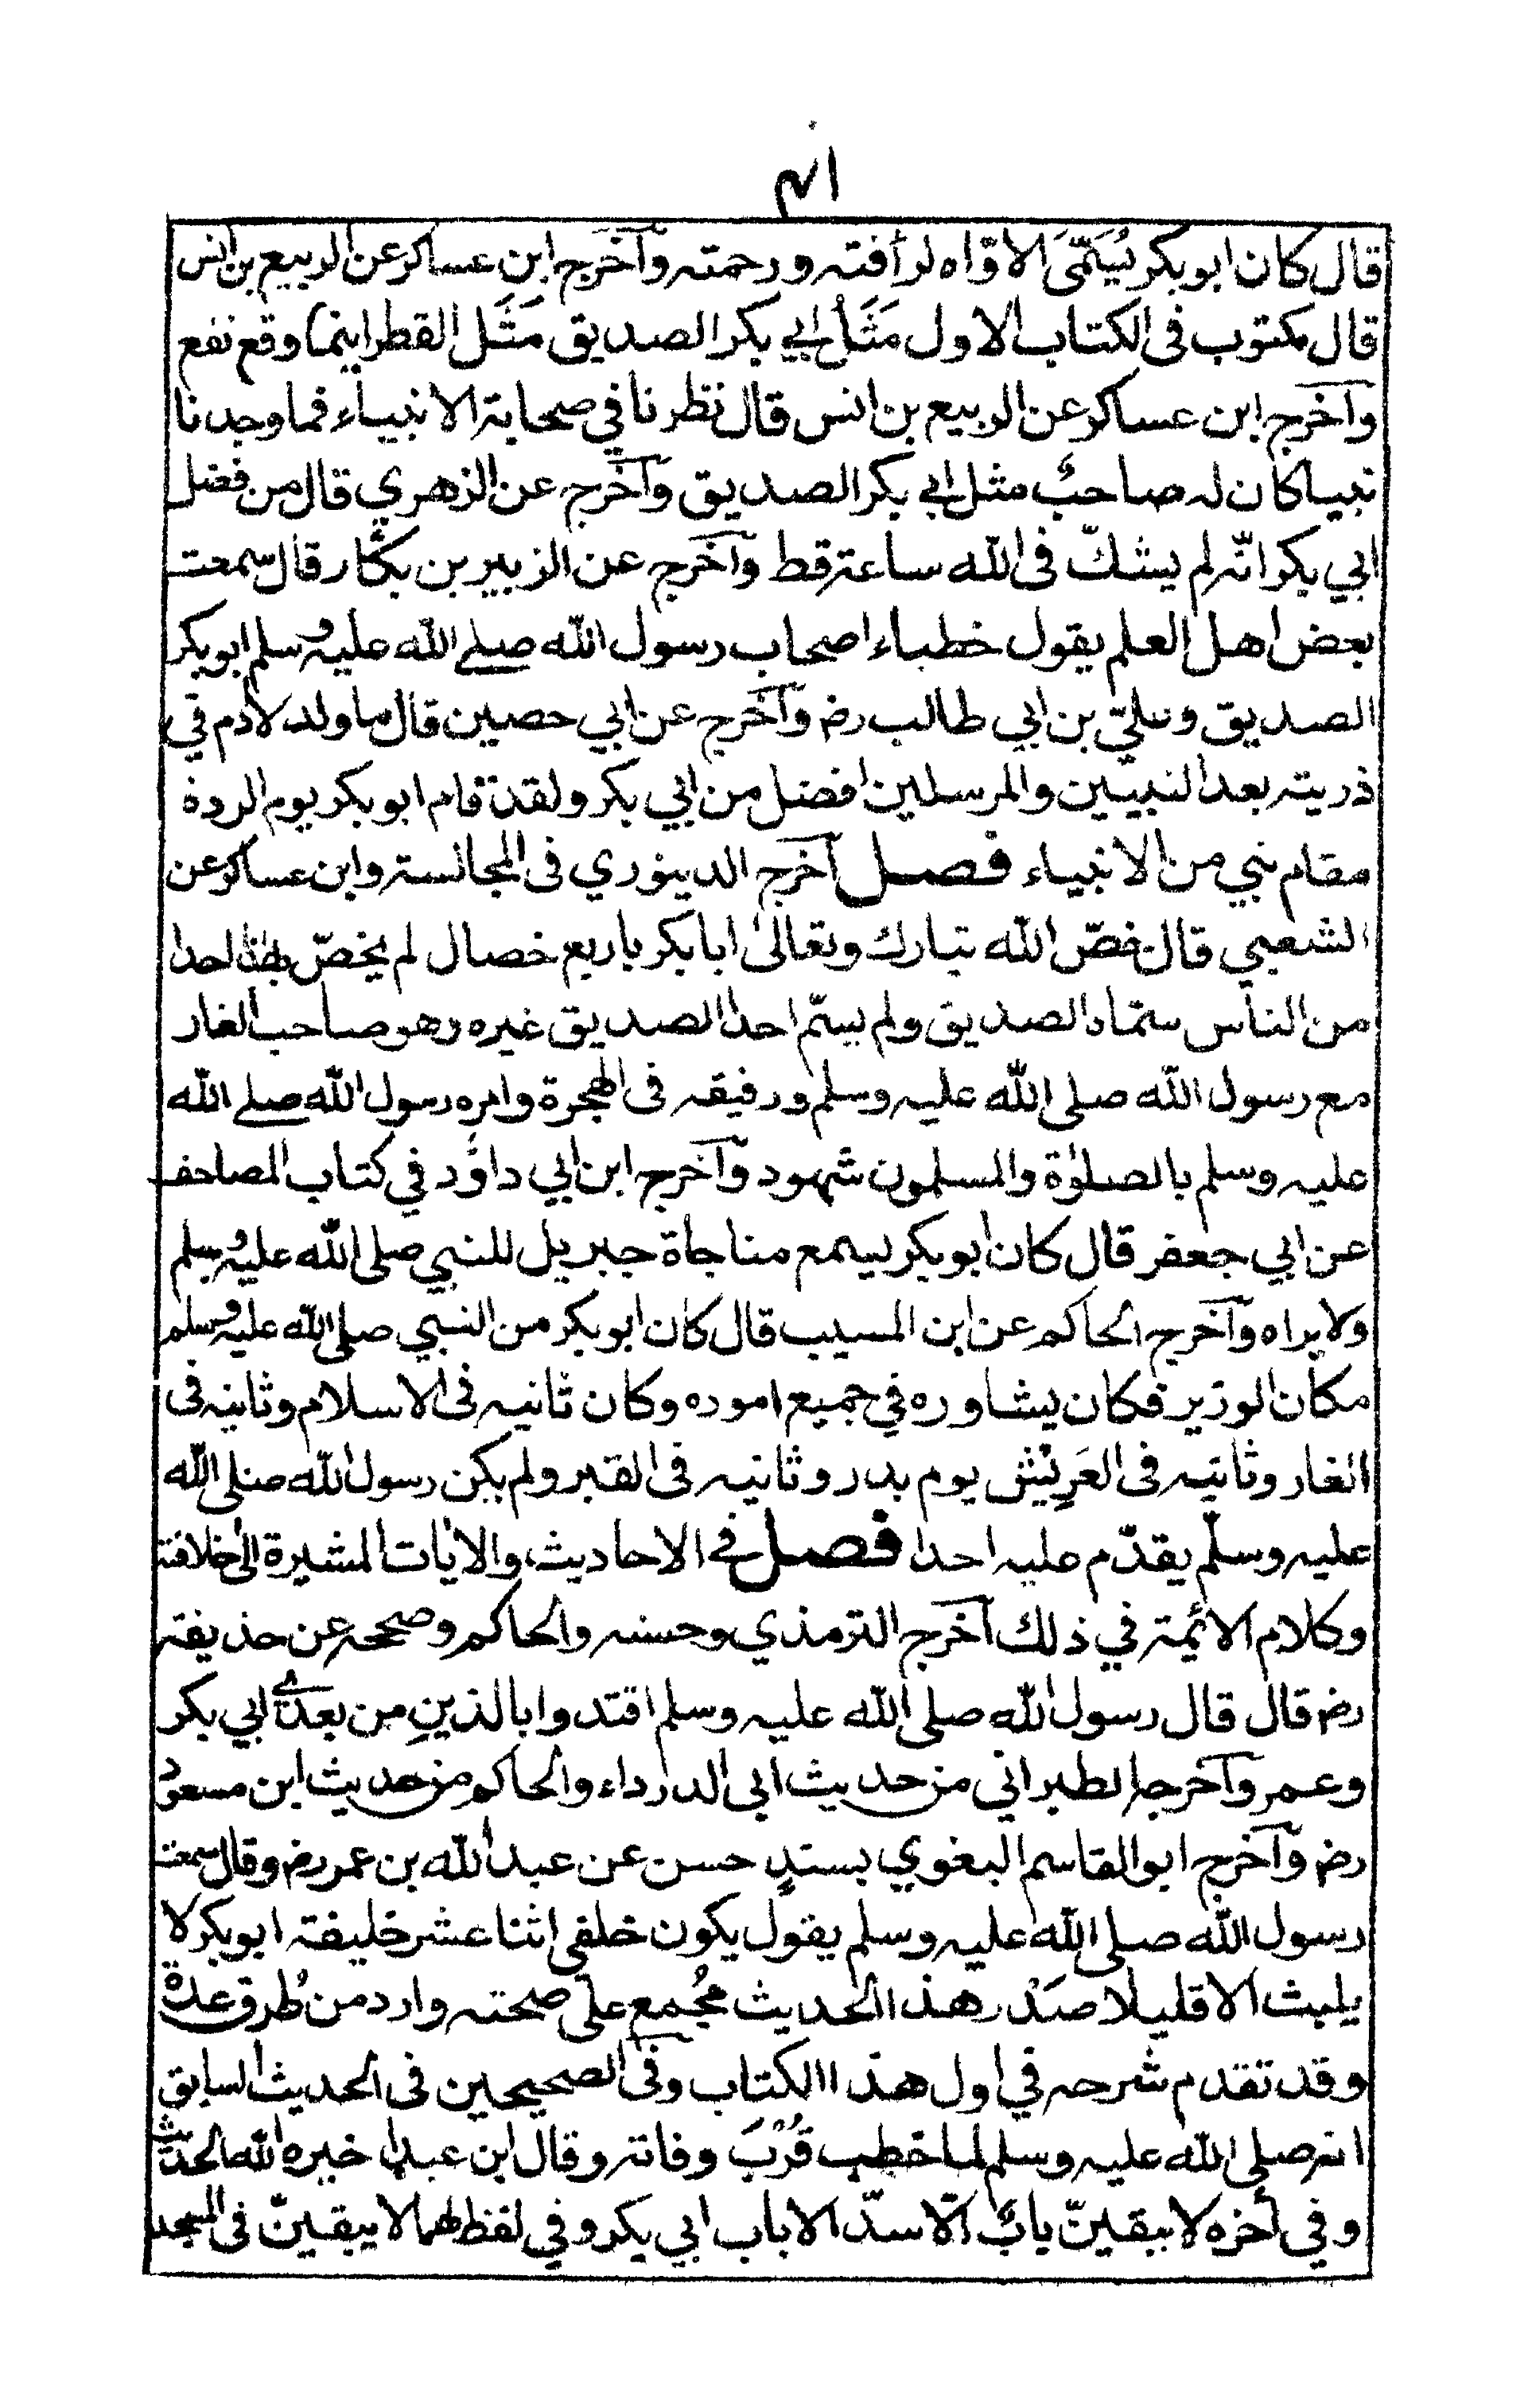 ٤١
قال كان ابو بكر يُسَمّىَ الاوّاه لرأفته ورحمته وآخرج ابن عساكر عن الربيع بن انس
قال مكتوب فى الكتاب الاول مَثَلُ ابي بكر الصديق مَثَل القطر اينما وقع نفع
وآخرج ابن عساكر عن الربيع بن انس قال نظرنا في صحابة الانبياء فما وجدنا
نبيا كان له صاحبٌ مثل ابي بكر الصديق وآخرج عن الزهري قال من فضل
ابي بكر انّه لم يشكّ فى الله ساعة قط وآخرج عن الزبير بن بكّار قال سمعت
بعض اهل العلم يقول خطباء اصحاب رسول الله صلے الله عليه وسلم ابو بكر
الصديق وعلي بن ابي طالب رض وآخرج عن ابي حصين قال ما ولد لأدم في
ذريته بعد النبيين والمرسلين افضل من ابي بكر ولقد قام ابو بكر يوم الردة
مقام نبي من الانبياء فصل آخرج الدينوري فى المجالسة وابن عساكر عن
الشعبي قال خصّ الله تبارك وتعالىٰ ابا بكر باربع خصال لم يخصّ بها احدا
من الناس سمّاه الصديق ولم يسمّ احدا الصديق غيره وهو صاحب الغار
مع رسول الله صلى الله عليه وسلم ورفيقه فى الهجرة وامره رسول الله صلے الله
عليه وسلم بالصلوٰة والمسلمون شهود وآخرج ابن ابي داؤد في كتاب المصاحف
عن ابي جعفر قال كان ابو بكر يسمع مناجاة جبريل للنبي صلى الله عليه وسلم
ولا يراه وآخرج الحاكم عن ابن المسيب قال كان ابو بكر من النبي صلى الله عليه وسلم
مكان الوزير فكان يشاوره في جميع اموره وكان ثانيه فى الاسلام وثانيه فى
الغار وثانيه فى العَرِيْش يوم بدر وثانيه فى القبر ولم يكن رسول الله صلى الله
عليه وسلّم يقدّم عليه احدا فصل فے الاحاديث والاٰيات المشيرة الىٰ خلافته
وكلام الائمة في ذلك آخرج الترمذي وحسنه والحاكم وصححه عن حذيفة
رض قال قال رسول الله صلى الله عليه وسلم اقتدوا بالذينِ من بعدے ابي بكر
وعمر وآخرجه الطبراني من حديث ابى الدرداء والحاكم من حديث ابن مسعود
رض وآخرج ابو القاسم البغوي بسندٍ حسن عن عبد الله بن عمر رض وقال سمعت
رسول الله صلى الله عليه وسلم يقول يكون خلفى اثنا عشر خليفة ابو بكر لا
يلبث الا قليلا صَدْر هذا الحديث مُجْمع على صحته وارد من طُرق عدة
وقد تقدم شرحه في اول هذا الكتاب وَفى الصحيحين فى الحديث السابق
انه صلى الله عليه وسلم لما خطب قُرْبَ وفاته وقال ان عبدا خيره الله الحديث
وفي أخره لا يبقينّ بابٌ الّا سدّ الا باب ابي بكر وفي لفظ لهما لا يبقينّ فى المسجد